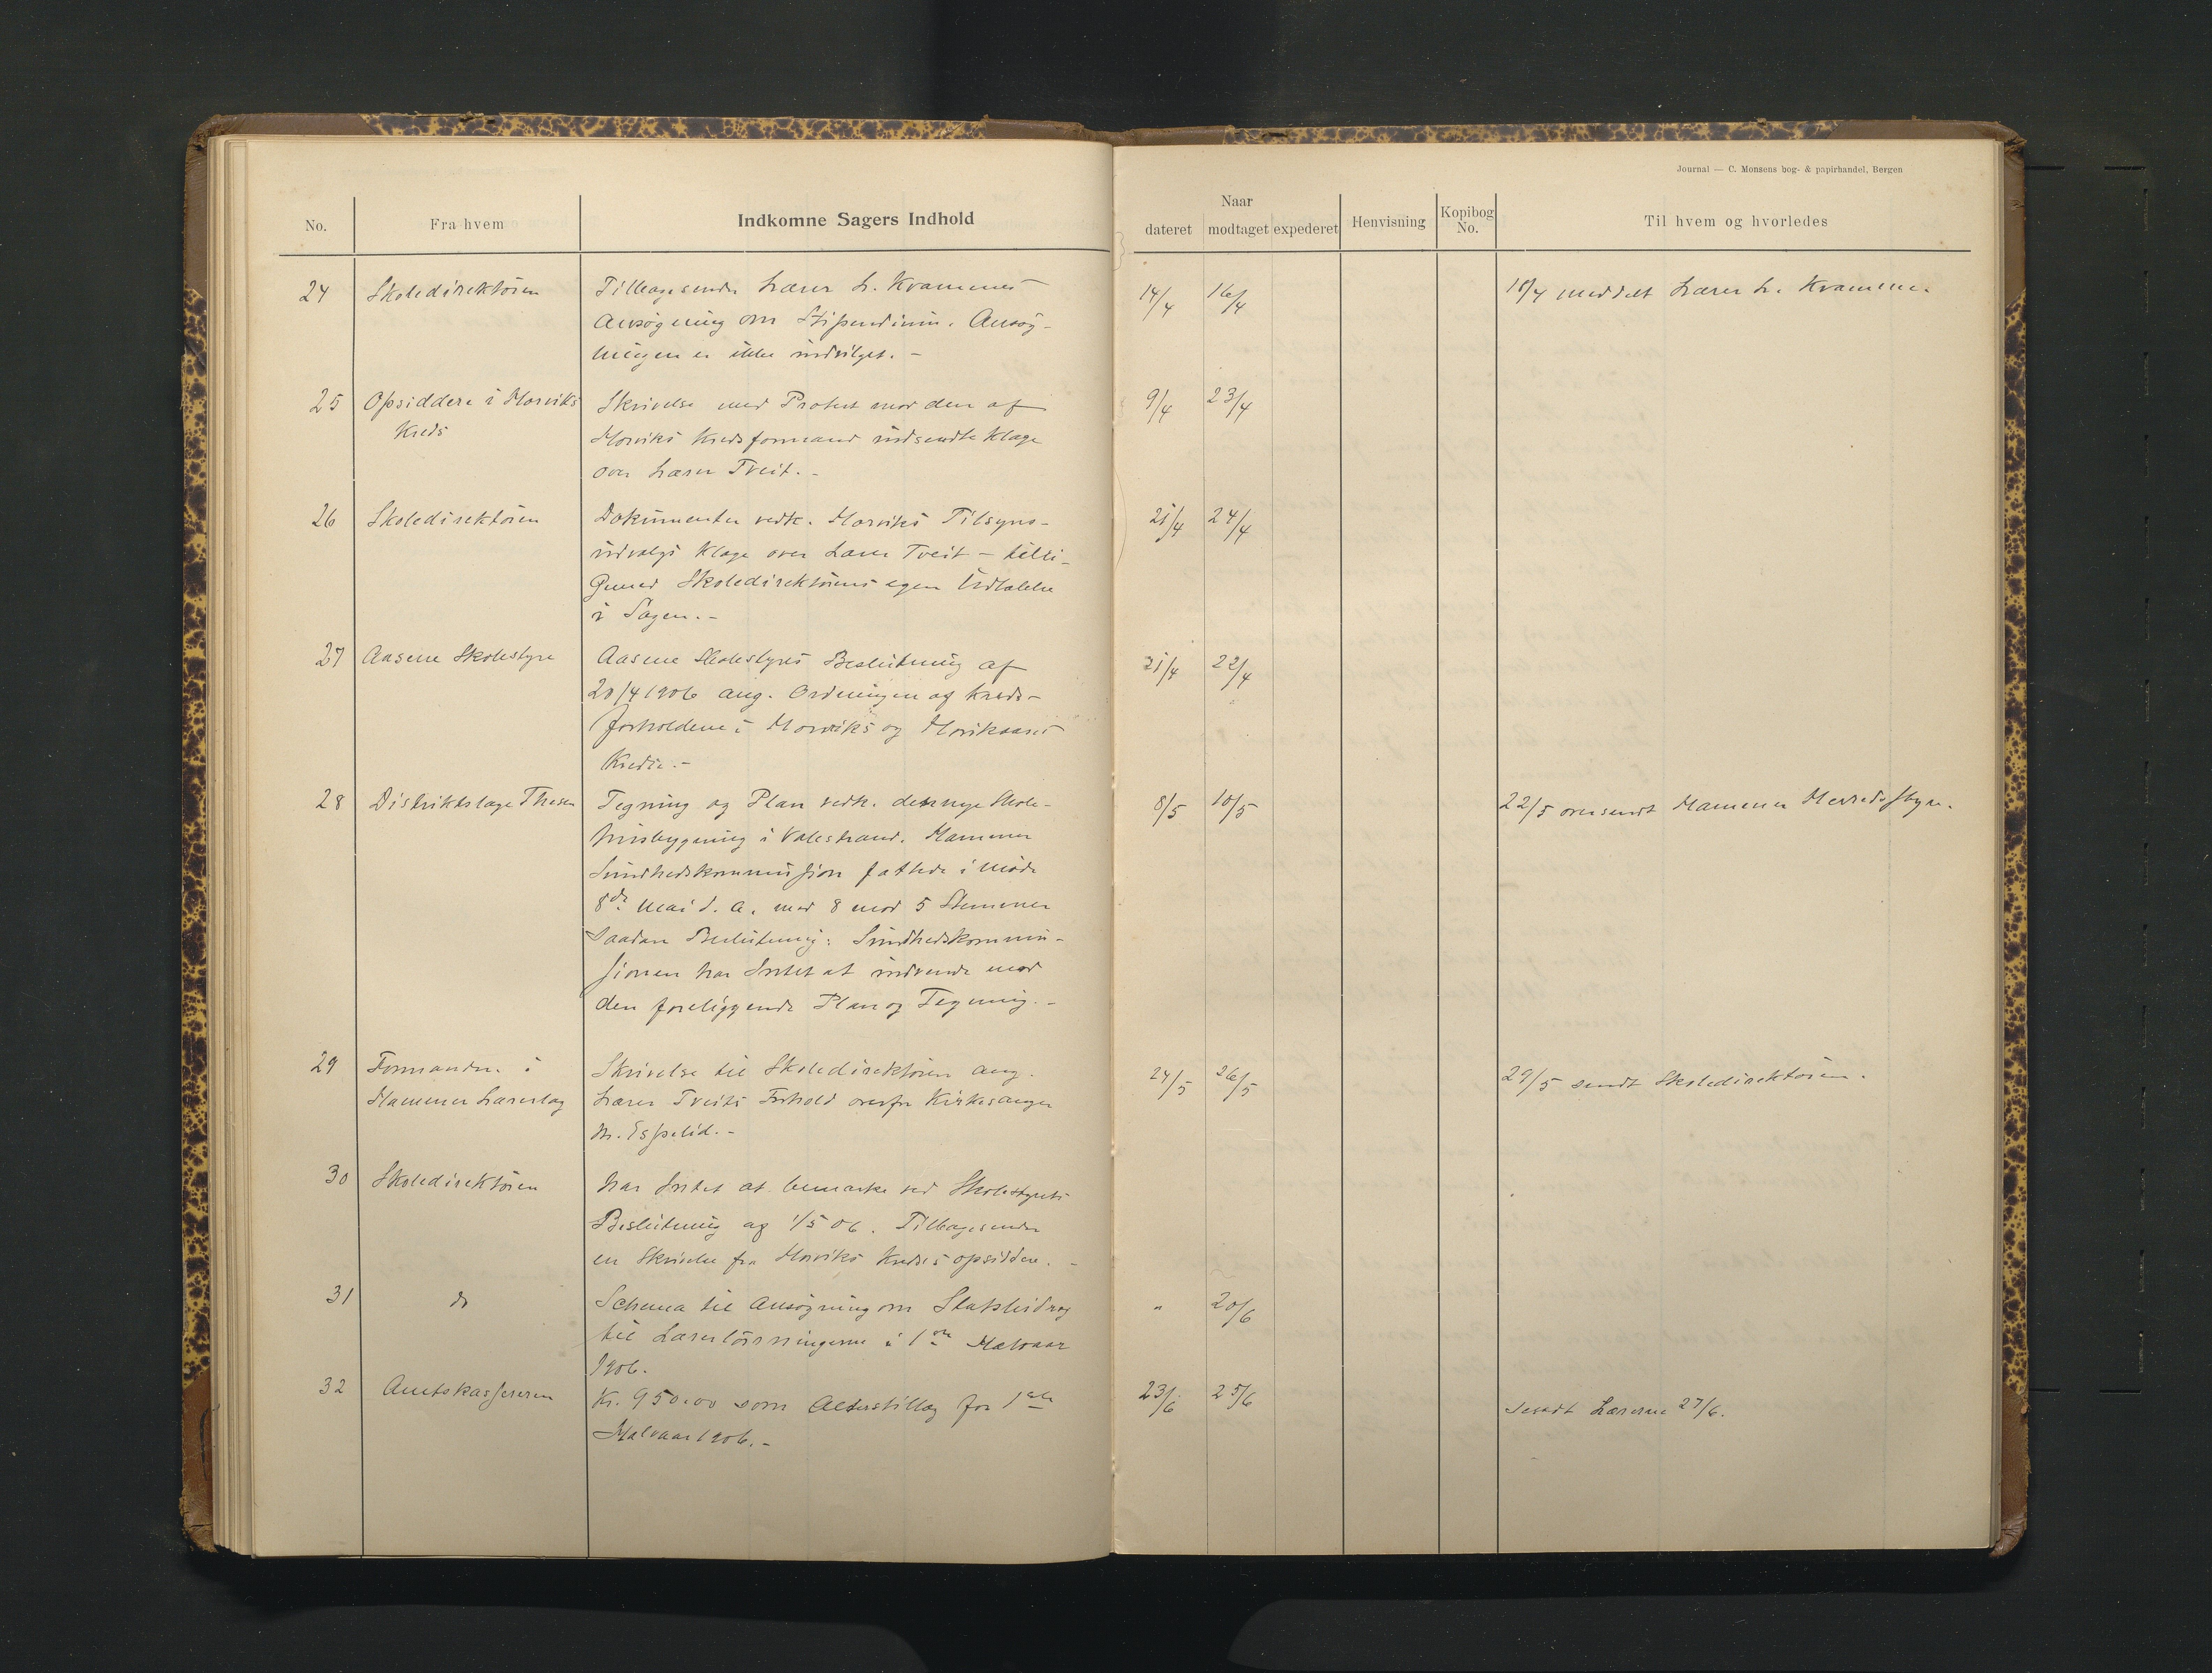 Journal — C. Monsens bog- & papirhandel, Bergen
No.
Fra hvem
Indkomne Sagers Indhold
Naar
dateret
modtaget
expederet
Henvisning
Kopibog No.
Til hvem og hvorledes
24 Skoledirektøren Tilbagesender Lærer L. Kvammes 14/4 16/4 18/4 meddelt Lærer L. Kvamme.
Ansøgning om Stipendium. Ansøg-
ningen er ikke indvilget. -
25 Opsiddere i Horviks Skrivelse med Protest mod den af 9/4 23/4
Kreds Horviks Kredsformand indsendte Klage
over Lærer Tveit. -
26 Skoledirektøren Dokumenter vedk. Horviks Tilsyns- 21/4 24/4
udvalgs Klage over Lærer Tveit - tilli-
gemed Skoledirektørens egen Udtalelse
i Sagen. -
27 Aasene Skolestyre Aasene Skolestyres Beslutning af 21/4 22/4
20/4 1906 ang. Ordningen af Kreds-
forholdene i Horviks og Horviksaases
Kredse. -
28 Distriktslæge Thesen Tegning og Plan vedk. den nye Skole- 8/5 10/5 22/5 oversendt Hammer Herredsstyre.
husbygning i Valestrand. Hammer
Sundhedskommission fattede i Møde
8de Mai d. A. med 8 mod 5 Stemmer
saadan Beslutning: Sundhedskommis-
sionen har Intet at indvende mod
den foreliggende Plan og Tegning. -
29 Formanden i Skrivelse til Skoledirektøren ang. 24/5 26/5 29/5 sendt Skoledirektøren.
Hammer Lærerlag Lærer Tveits Forhold overfor Kirkesanger
M. Espelid. -
30 Skoledirektøren har Intet at bemærke ved Skolestyrets
Beslutning af 1/5 06. Tilbagesender
en Skrivelse fra Horviks Kreds's opsiddere. -
31 do Schema til Ansøgning om Statsbidrag " 20/6
til Lærerlønningerne i 1ste Halvaar
1906.
32 Amtskassereren Kr. 950.00 som Alderstillæg for 1ste 23/6 25/6 sendt Lærerne 27/6.
Halvaar 1906. -